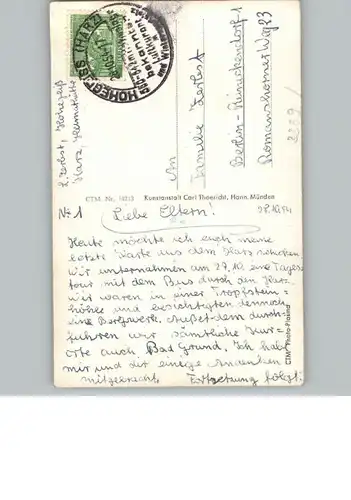 HOHEGEISS (HARZ)
An
Familie Zerbst
Berlin-Reinickendorf 1
Romanshorner Weg 23
Z. Zerbst, Hohegeiß
Harz,
CTM. Nr.
Konstanstalt Carl Thoericht, Hann. Münden
CTM Photo-Plakind
№1 Liebe Eltern! 28.10.54
Heute möchte ich euch meine
letzte Karte aus dem Harz schicken
Wir unternahmen am 27.10 eine Tages
tour mit dem Bus durch den Harz
wir waren in einer Tropfstein-
höhle und besichtigten dennoch
eine Bergwerk. Außerdem durch-
fuhren wir sämtliche Kur-
orte auch Bad Grund. Ich hab
mir und dir einige Andenken
mitgebracht. Fortsetzung folgt!